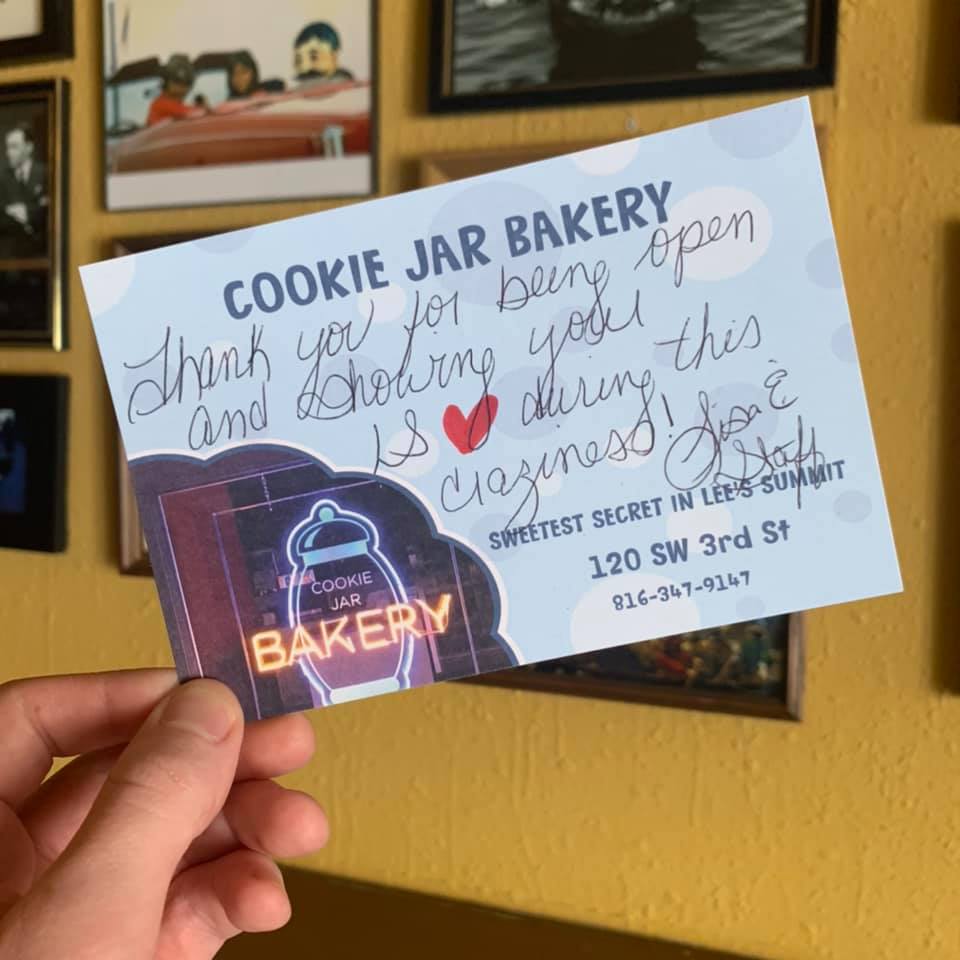 COOKIE JAR BAKERY
Thank you for being open
and showing your
is ♥ during this
craziness! Lisa &
Staff
SWEETEST SECRET IN LEE'S SUMMIT
120 SW 3rd St
816-347-9147
COOKIE
JAR
BAKERY